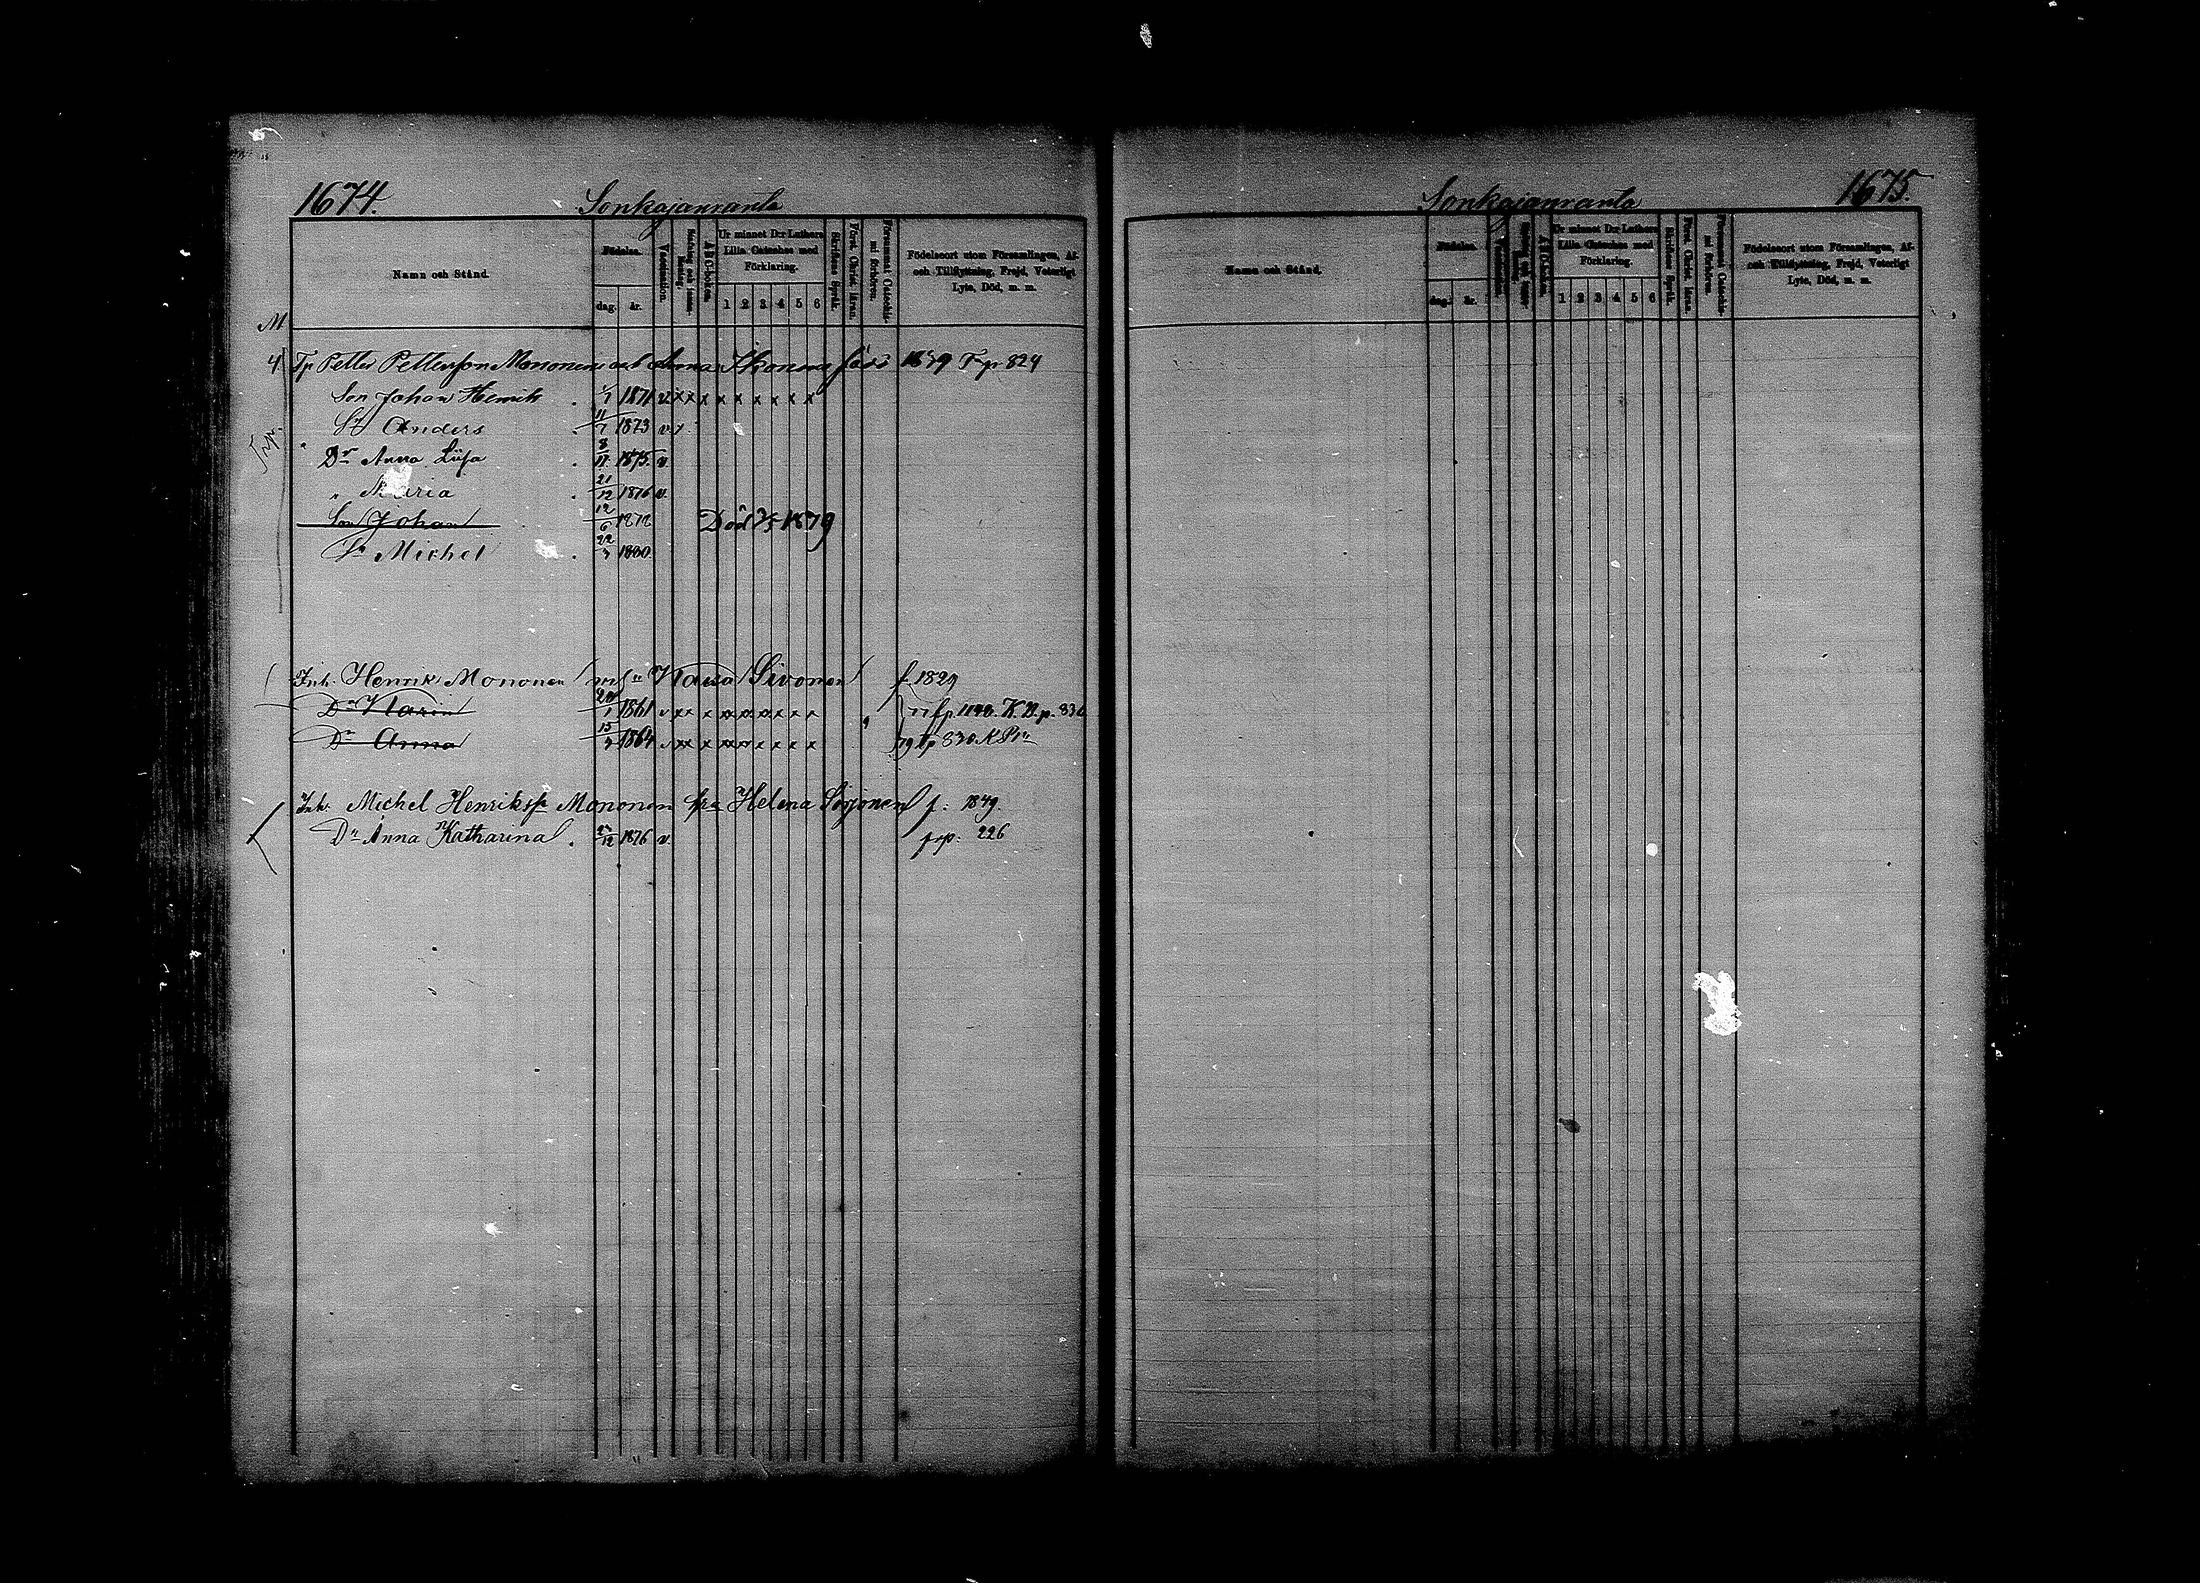 1674.
Sonkajanranta
Namn och Stånd.
Födelse.
dag.
år.
Vaccination.
A B C-boken.
Ur minnet D:r Luthers
Lilla Cateches med
Förklaring.
1 2 3 4 5 6
Skriftens Språk.
Först. Christ. läran.
Försummat Catechis-
mi förhören.
Födelseort utom Församlingen, Af-
och Tillflyttning, Frejd, Veterligt
Lyte, Död, m. m.
M
4 Tp Petter Pettersson Mononens och Anna Ikonens 1879 p 824
Son Johan Henrik 1/1 1871 v. x x x x x x x x x
Anders 11/7 1873 v.
Dr Anna Lisa 8/11 1875 v.
" Maria 21/12 1876 v.
Son Johan 12/6 1878 Död 1879
Sn Michel 22/3 1880
Inh. Henrik Mononen Kaisa Sivonen f. 1829
Dr Karin 20/1 1861 v x x x x x x x x x
Dr Anna 15/3 1864 v x x x x x x x x x p 830
Inh. Michel Henrikss. Mononen Helena f: 1849.
Dr Anna Katharina 12 1876 v. p: 226
Sonkajanranta
1675.
Namn och Stånd.
Födelse.
dag.
år.
Vaccination.
A B C-boken.
Ur minnet D:r Luthers
Lilla Cateches med
Förklaring.
1 2 3 4 5 6
Skriftens Språk.
Först. Christ. läran.
Försummat Catechis-
mi förhören.
Födelseort utom Församlingen, Af-
och Tillflyttning, Frejd, Veterligt
Lyte, Död, m. m.